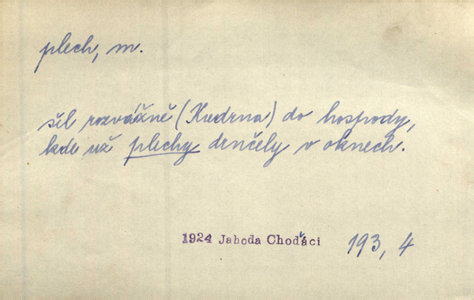 plech, m.
šel rozvážně (Kudrna) do hospody,
kde už plechy drnčely v oknech.
1924 Jahoda Choďáci 193, 4